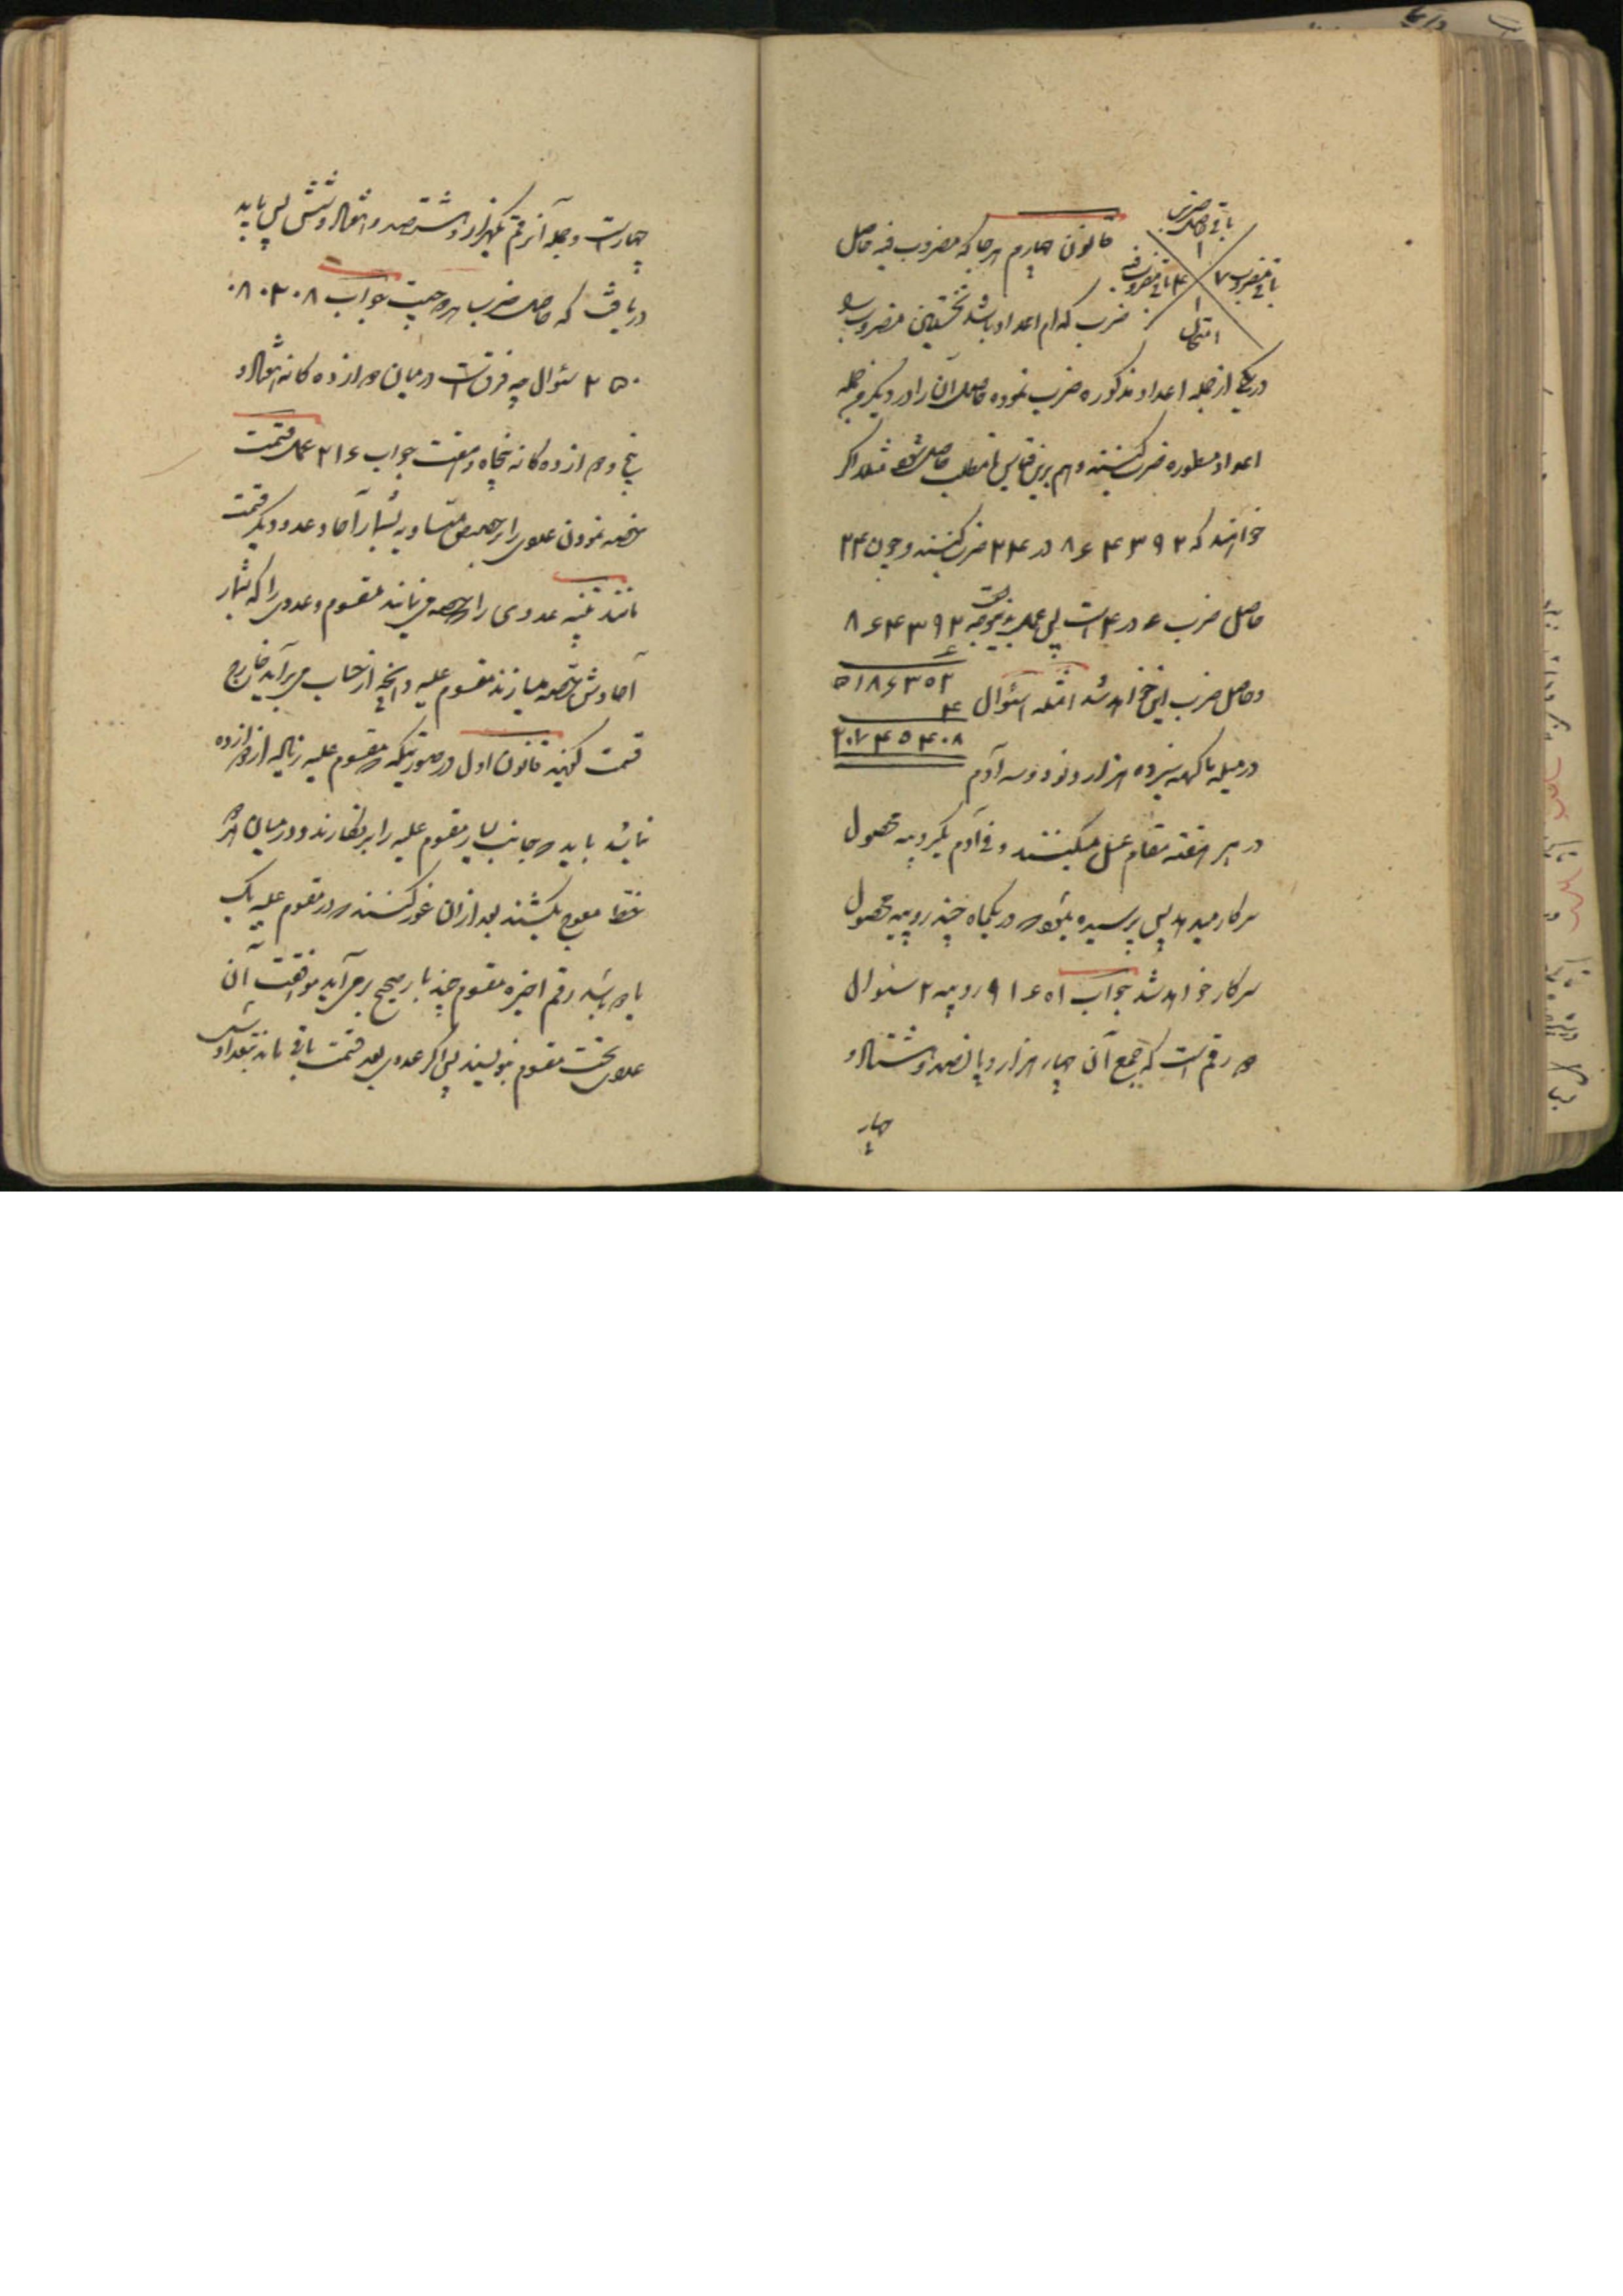 باقی حاصل ضرب
۱
باقی مضروب ۷
۴ باقی مضروب فیه
۱
امتحان
قانون چهارم هرجا که مضروب فیه حاصل
ضرب کدام اعداد باشد نخستین مضروب را
در یکی از جمله اعداد مذکوره ضرب نموده حاصل آن را در دیگر من جمله
اعداد مسطوره ضرب کنند و هم برین قیاس تا مطلب حاصل شود مثلا اگر
خواهند که ۸۶۴۳۹۲ در ۲۴ ضرب کنند و چون ۲۴
حاصل ضرب ۶ در ۴ است پس عمل بدینوجه ۸۶۴۳۹۲
۶
و حاصل ضرب این خواهد شد امثله ۱ سئوال
۵۱۸۶۳۵۲
۴
۲۰۷۴۵۴۰۸
در میله ماگهه سیزده هزار و نود و سه آدم
در هر هفته مقام غسل میکنند و فی آدم یکروپیه محصول
سرکار میدهد پس پرسیده میشود که در یکماه چند روپیه محصول
سرکار خواهد شد جواب ۹۱۶۵۱ روپیه ۲ سئوال
دو رقم است که جمع آن چهار هزار و پانصد و هشتاد و
چهار
چهار است و جمله آن رقم یکهزار و هشتصد و هشتاد و شش پس باید
دریافت که حاصل ضرب هر دو چیست جواب ۰۸۰۲۰۸
۲۵۰ سئوال چه فرق است درمیان دوازده گانه هشتاد و
پنج و دوازده گانه پنجاه و هفت جواب ۲۱۶ عمل قسمت
حصه نمودن عددی را بر حصص متساویه بشمار آحاد عدد دیگر قسمت
نامند تنبیه عددی را که حصه میفرمایند مقسوم و عددی را که بشمار
آحادش حصه میسازند مقسوم علیه و آنچه از حساب میبرآید خارج
قسمت گویند قانون اول در صورتیکه مقسوم علیه زیاده از دوازده
نباشد باید که جانب یسار مقسوم علیه را بر نگارند و درمیان هر دو
خط معوج بکشند بعد ازان غور کنند که در مقسوم علیه یک
یا دو رقم اخیره مقسوم چند بار صحیح برمیآید موافقت آن
عددی تحت مقسوم بنویسند پس اگر عددی بعد قسمت باقی ماند بتعدادش